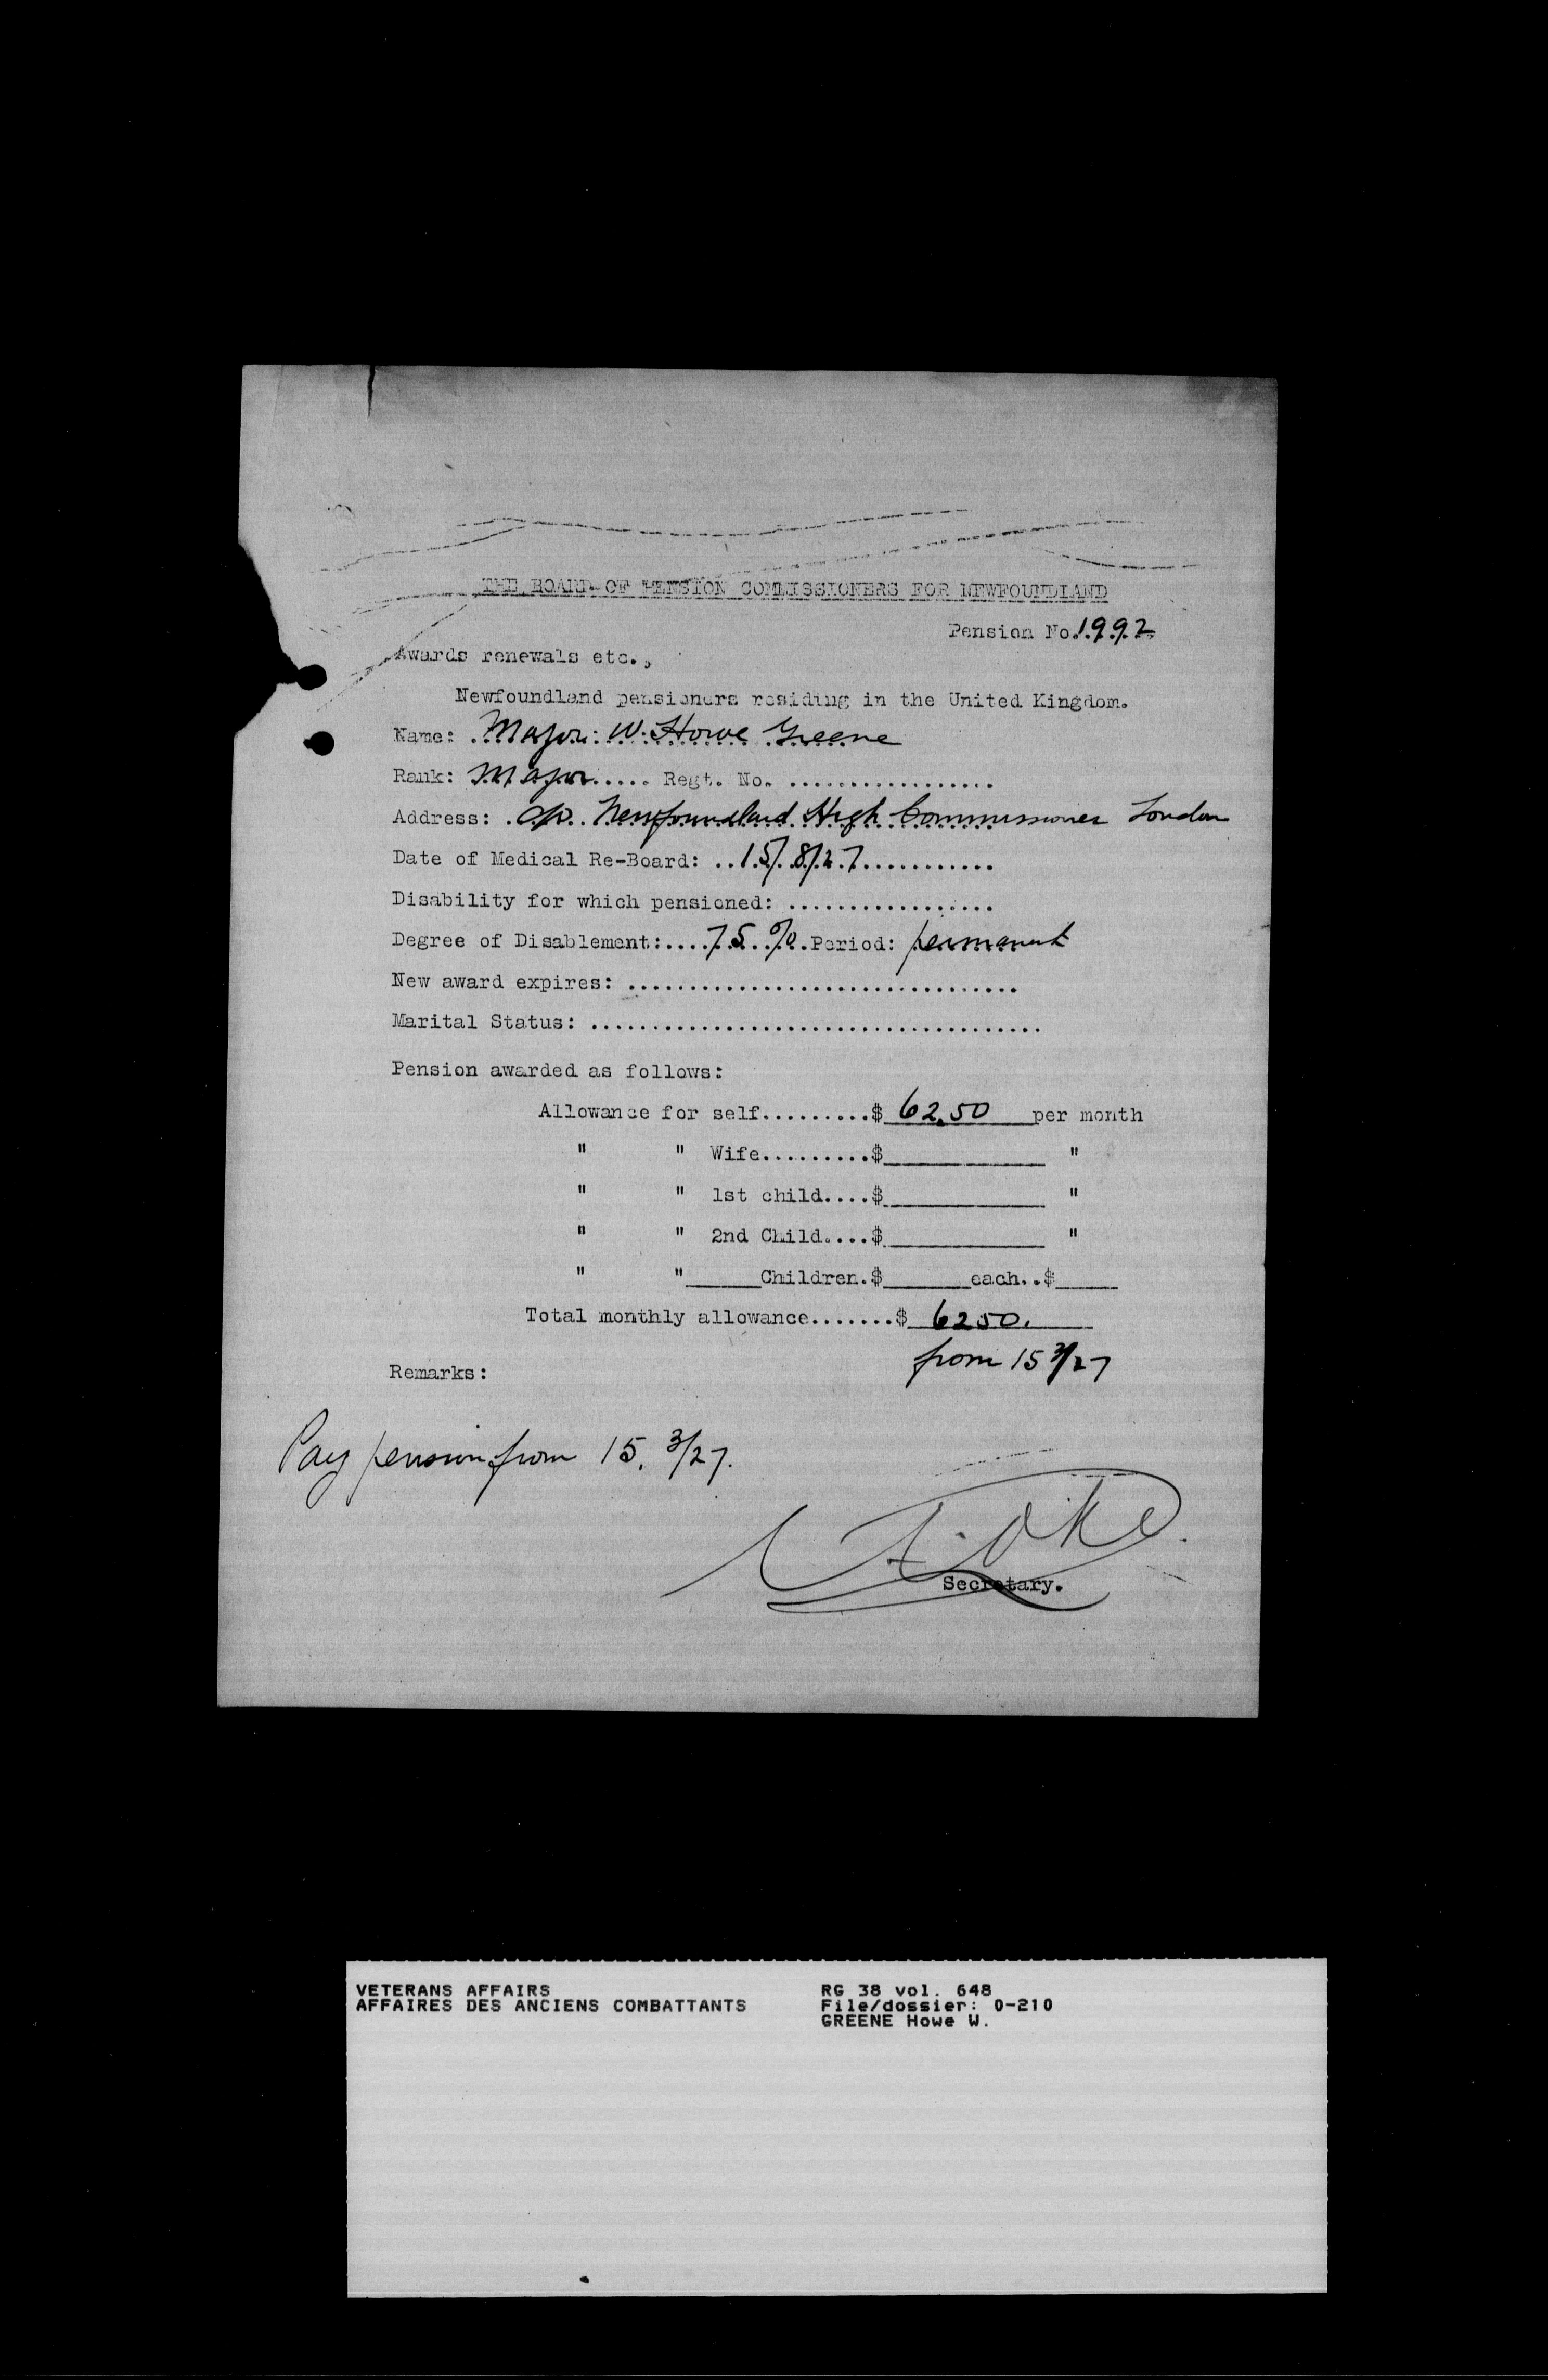 THE BOARD OF PENSION COMMISSIONERS FOR NEWFOUNDLAND
Pension No. 1992
Awards renewals etc.,
Newfoundland pensioners residing in the United Kingdom.
Name: Major: W. Howe Greene
Rank: Major..... Regt. No. .................
Address: c/o. Newfoundland High Commissioner London
Date of Medical Re-Board: ..15/8/27...........
Disability for which pensioned: .................
Degree of Disablement:....75%.Period: permanent
New award expires: .................................
Marital Status: ......................................
Pension awarded as follows:
Allowance for self.........$ 62.50 per month
" " Wife.........$__________ "
" " 1st child....$__________ "
" " 2nd Child....$__________ "
" "_____Children.$______each..$____
Total monthly allowance.......$ 6250.
from 15 3/27
Remarks:
Pay pension from 15. 3/27.
Secretary.
VETERANS AFFAIRS
AFFAIRES DES ANCIENS COMBATTANTS
RG 38 vol. 648
File/dossier: 0-210
GREENE Howe W.